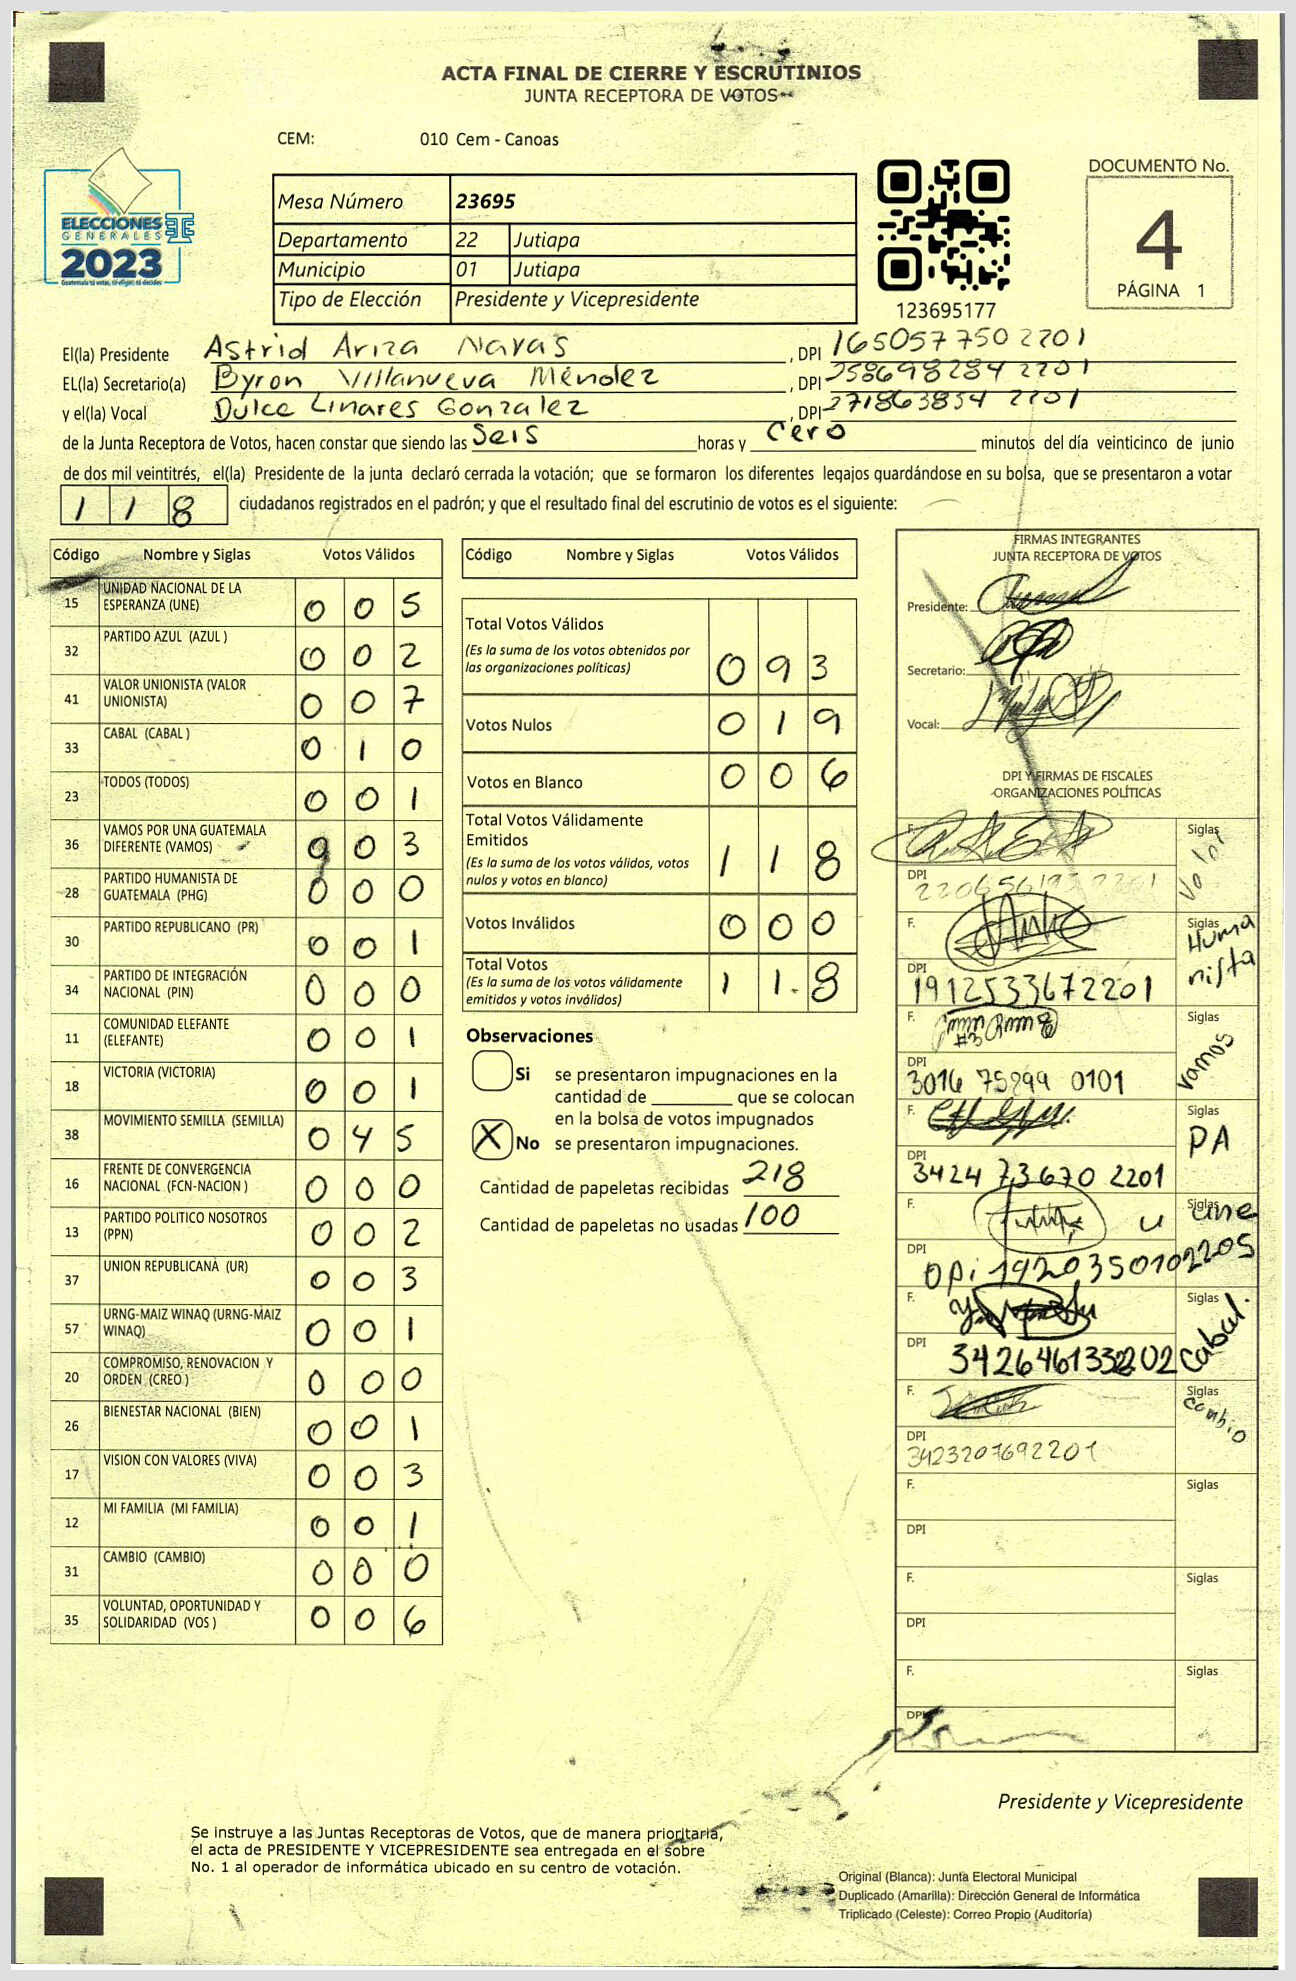 ACTA FINAL DE CIERRE Y ESCRUTINIOS
JUNTA RECEPTORA DE VOTOS
CEM: 010 Cem - Canoas
ELECCIONES
GENERALES
2023
Guatemala tú votas, tú eliges, tú decides
Mesa Número 23695
Departamento 22 Jutiapa
Municipio 01 Jutiapa
Tipo de Elección Presidente y Vicepresidente
123695177
DOCUMENTO No.
4
PÁGINA 1
El(la) Presidente Astrid Ariza Navas , DPI 1650577502201
EL(la) Secretario(a) Byron Villanueva Méndez , DPI 2586982842201
y el(la) Vocal Dulce Linares Gonzalez , DPI 2718638542201
de la Junta Receptora de Votos, hacen constar que siendo las Seis horas y Cero minutos del día veinticinco de junio
de dos mil veintitrés, el(la) Presidente de la junta declaró cerrada la votación; que se formaron los diferentes legajos guardándose en su bolsa, que se presentaron a votar
118 ciudadanos registrados en el padrón; y que el resultado final del escrutinio de votos es el siguiente:
Código Nombre y Siglas Votos Válidos
15 UNIDAD NACIONAL DE LA ESPERANZA (UNE) 0 0 5
32 PARTIDO AZUL (AZUL ) 0 0 2
41 VALOR UNIONISTA (VALOR UNIONISTA) 0 0 7
33 CABAL (CABAL ) 0 1 0
23 TODOS (TODOS) 0 0 1
36 VAMOS POR UNA GUATEMALA DIFERENTE (VAMOS) 0 0 3
28 PARTIDO HUMANISTA DE GUATEMALA (PHG) 0 0 0
30 PARTIDO REPUBLICANO (PR) 0 0 1
34 PARTIDO DE INTEGRACIÓN NACIONAL (PIN) 0 0 0
11 COMUNIDAD ELEFANTE (ELEFANTE) 0 0 1
18 VICTORIA (VICTORIA) 0 0 1
38 MOVIMIENTO SEMILLA (SEMILLA) 0 4 5
16 FRENTE DE CONVERGENCIA NACIONAL (FCN-NACION ) 0 0 0
13 PARTIDO POLITICO NOSOTROS (PPN) 0 0 2
37 UNION REPUBLICANA (UR) 0 0 3
57 URNG-MAIZ WINAQ (URNG-MAIZ WINAQ) 0 0 1
20 COMPROMISO, RENOVACION Y ORDEN (CREO ) 0 0 0
26 BIENESTAR NACIONAL (BIEN) 0 0 1
17 VISION CON VALORES (VIVA) 0 0 3
12 MI FAMILIA (MI FAMILIA) 0 0 1
31 CAMBIO (CAMBIO) 0 0 0
35 VOLUNTAD, OPORTUNIDAD Y SOLIDARIDAD (VOS ) 0 0 6
Código Nombre y Siglas Votos Válidos
Total Votos Válidos
(Es la suma de los votos obtenidos por
las organizaciones políticas) 0 9 3
Votos Nulos 0 1 9
Votos en Blanco 0 0 6
Total Votos Válidamente
Emitidos
(Es la suma de los votos válidos, votos
nulos y votos en blanco) 1 1 8
Votos Inválidos 0 0 0
Total Votos
(Es la suma de los votos válidamente
emitidos y votos inválidos) 1 1 8
Observaciones
Si se presentaron impugnaciones en la
cantidad de ________ que se colocan
en la bolsa de votos impugnados
X No se presentaron impugnaciones.
Cantidad de papeletas recibidas 218
Cantidad de papeletas no usadas 100
FIRMAS INTEGRANTES
JUNTA RECEPTORA DE VOTOS
Presidente:
Secretario:
Vocal:
DPI Y FIRMAS DE FISCALES
ORGANIZACIONES POLÍTICAS
F. Siglas Valor
DPI
F. Siglas Humanista
DPI 1912533672201
F. Siglas Vamos
DPI 3016 75899 0101
F. Siglas PA
DPI 3424 73670 2201
F. Siglas une
DPI DPi 1920350102205
F. Siglas Cabal.
DPI
F. Siglas Cambio
DPI 3423207692201
F. Siglas
DPI
F. Siglas
DPI
F. Siglas
DPI
Presidente y Vicepresidente
Se instruye a las Juntas Receptoras de Votos, que de manera prioritaria,
el acta de PRESIDENTE Y VICEPRESIDENTE sea entregada en el sobre
No. 1 al operador de informática ubicado en su centro de votación.
Original (Blanca): Junta Electoral Municipal
Duplicado (Amarilla): Dirección General de Informática
Triplicado (Celeste): Correo Propio (Auditoría)